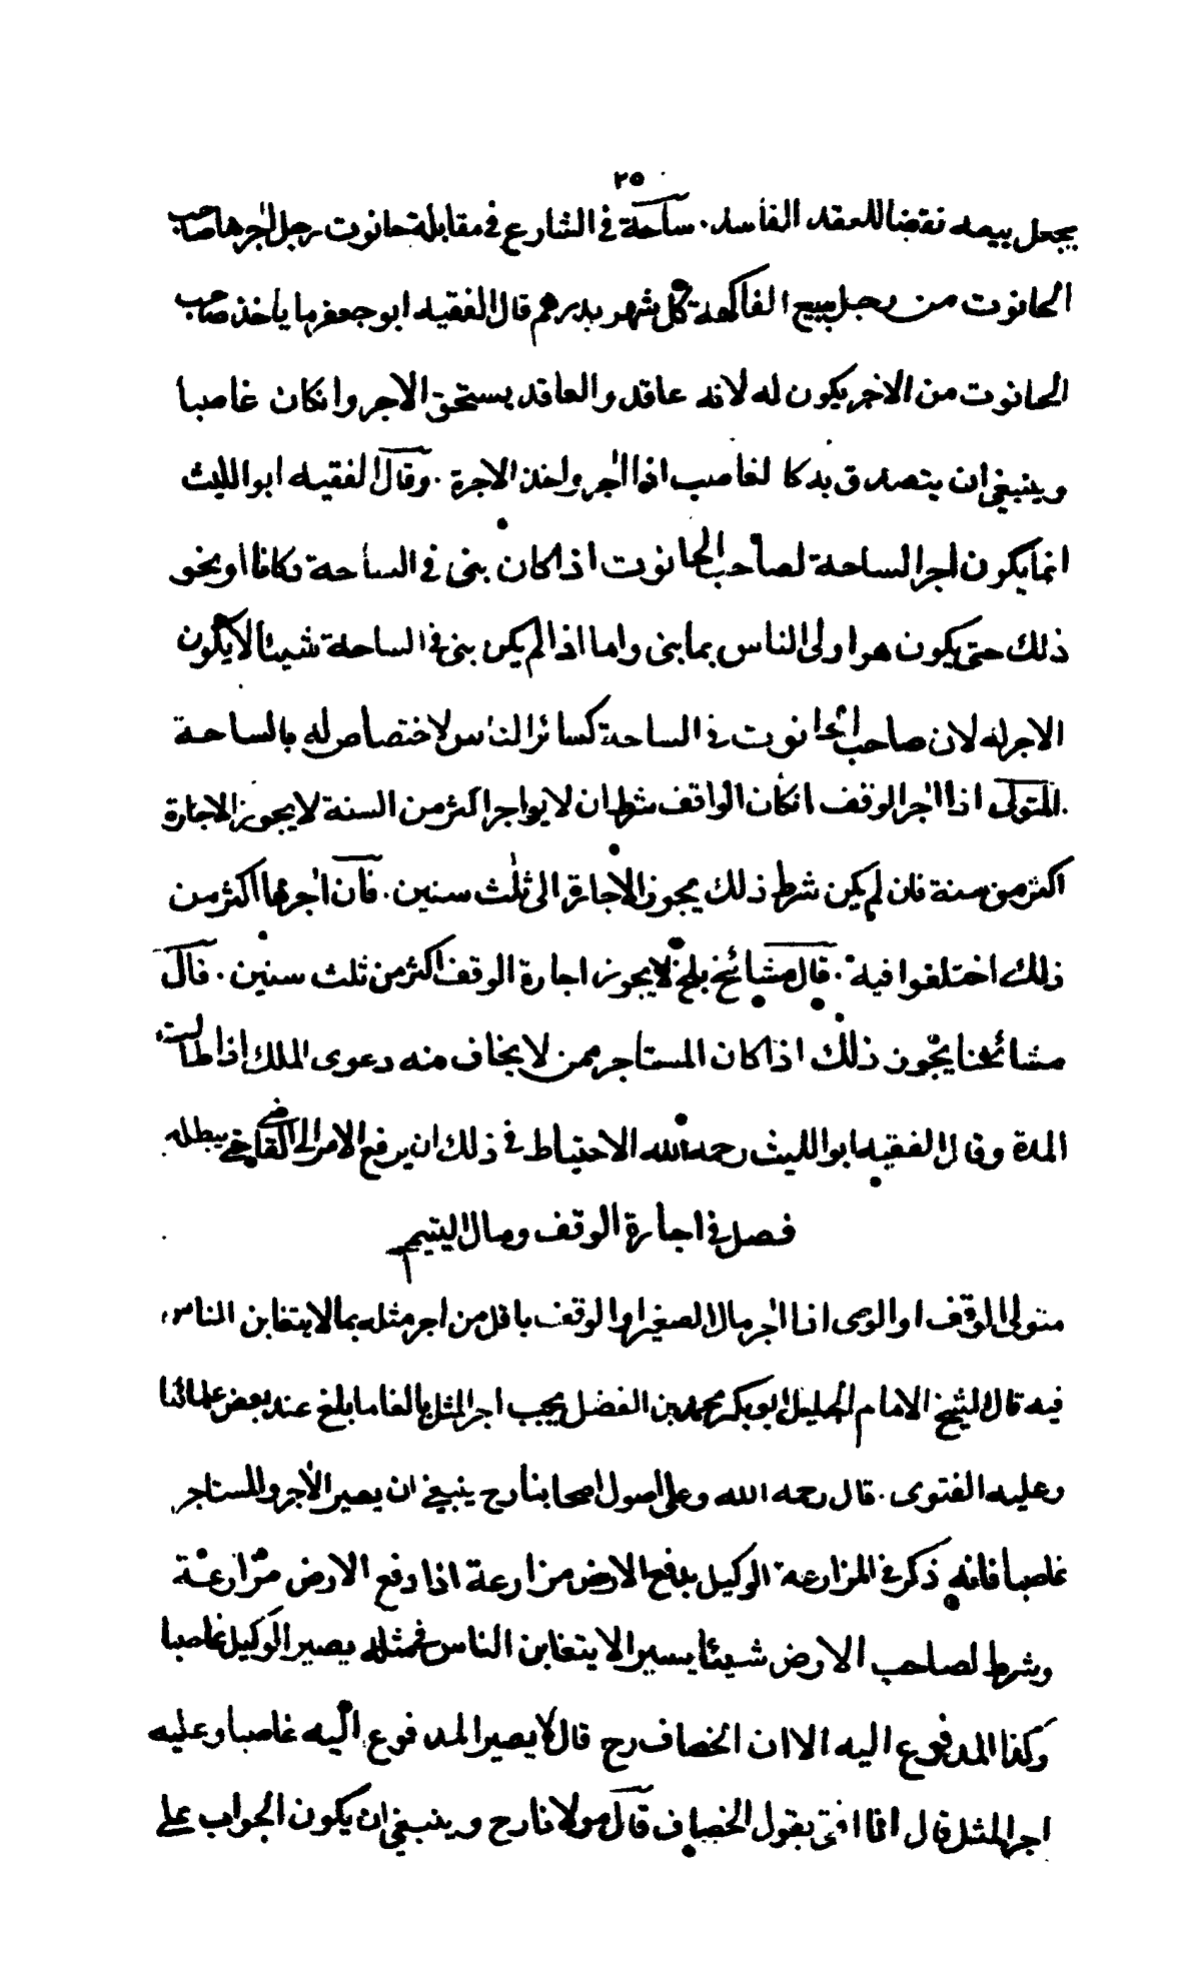 ٢٥
يجعل بيعه نقضا للعقد الفاسد. ساحة فى الشارع فى مقابلة حانوت رجل اجرها صاحب
الحانوت من رجل يبيع الفاكهة كل شهر بدرهم قال الفقيه ابو جعفر ما ياخذ صاحب
الحانوت من الاجر يكون له لانه عاقد والعاقد يستحق الاجر وانكان غاصبا
وينبغى ان يتصدق بذلك لغاصب اذا اجر واخذ الاجرة. وقال الفقيه ابو الليث
انما يكون اجر الساحة لصاحب الحانوت اذا كان بنى فى الساحة دكانا او نحو
ذلك حتى يكون هو اولى الناس بما بنى واما اذا لم يكن بنى فى الساحة شيئا لا يكون
الاجر له لان صاحب الحانوت فى الساحة كسائر الناس لا اختصاص له بالساحة
المتولى اذا اجر الوقف انكان الواقف شرط ان لا يواجر اكثر من السنة لا يجوز الاجارة
اكثر من سنة فان لم يكن شرط ذلك يجوز الاجارة الى ثلث سنين. فان اجرها اكثر من
ذلك اختلفوا فيه. قال مشائخ بلخ لا يجوز اجارة الوقف اكثر من ثلث سنين. قال
مشائخنا يجوز ذلك اذا كان المستاجر ممن لا يخاف منه دعوى الملك اذا طالت
المدة وقال الفقيه ابو الليث رحمه الله الاحتياط فى ذلك ان يرفع الامر الى القاضى يبطله
فصل فى اجارة الوقف ومال اليتيم
متولى الوقف او الوصى اذا اجر مال الصغير او الوقف باقل من اجر مثله بما لا يتغابن الناس
فيه قال الشيخ الامام الجليل ابو بكر محمد بن الفضل يجب اجر المثل بالغا ما بلغ عند بعض علمائنا
وعليه الفتوى. قال رحمه الله وعلى اصول اصحابنا رح ينبغى ان يصير الاجر والمستاجر
غاصبا فانه ذكر فى المزارعة الوكيل بدفع الارض مزارعة اذا دفع الارض مزارعة
وشرط لصاحب الارض شيئا يسيرا لا يتغابن الناس فى مثله يصير الوكيل غاصبا
وكذا المدفوع اليه الا ان الخصاف رح قال لا يصير المدفوع اليه غاصبا وعليه
اجر المثل قال انا افتى بقول الخصاف قال مولانا رح وينبغى ان يكون الجواب على